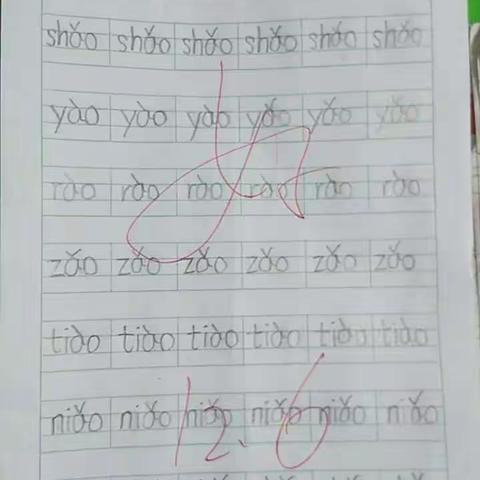 shǎo shǎo shǎo shǎo shǎo shǎo
yào yào yào yǎo yǎo yǎo
rào rào rào rào rào rào
zǎo zǎo zǎo zǎo zǎo zǎo
tiào tiào tiào tiào tiào tiào
niǎo niǎo niǎo niǎo niǎo niǎo
12.6